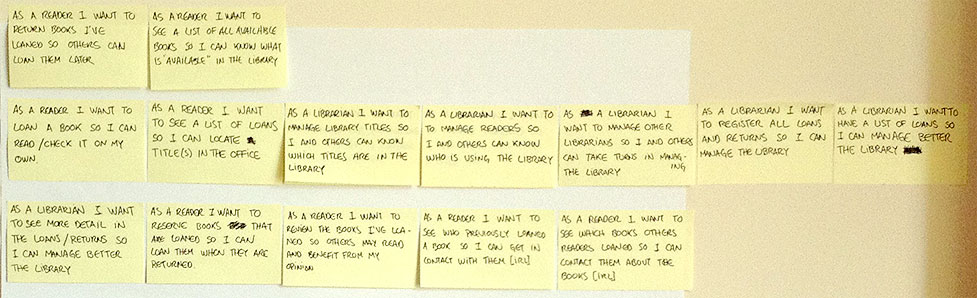 AS A READER I WANT TO
RETURN BOOKS I'VE
LOANED SO OTHERS CAN
LOAN THEM LATER
AS A READER I WANT TO
SEE A LIST OF ALL AVAILIBLE
BOOKS SO I CAN KNOW WHAT
IS "AVAILABLE" IN THE LIBRARY
AS A READER I WANT TO
LOAN A BOOK SO I CAN
READ /CHECK IT ON MY
OWN
AS A READER I WANT
TO SEE A LIST OF LOANS
SO I CAN LOCATE
TITLE(S) IN THE OFFICE
AS A LIBRARIAN I WANT TO
MANAGE LIBRARY TITLES SO
I AND OTHERS CAN KNOW
WHICH TITLES ARE IN THE
LIBRARY
AS A LIBRARIAN I WANT TO
TO MANAGE READERS SO
I AND OTHERS CAN KNOW
WHO IS USING THE LIBRARY
AS A LIBRARIAN I
WANT TO MANAGE OTHER
LIBRARIANS SO I AND OTHERS
CAN TAKE TURNS IN MANAG-
ING
THE LIBRARY
AS A LIBRARIAN I WANT
TO REGISTER ALL LOANS
AND RETURNS SO I CAN
MANAGE THE LIBRARY
AS A LIBRARIAN I WANT TO
HAVE A LIST OF LOANS SO
I CAN MANAGE BETTER
THE LIBRARY
AS A LIBRARIAN I WANT
TO SEE MORE DETAIL IN
THE LOANS/RETURNS SO
I CAN MANAGE BETTER
THE LIBRARY
AS A READER I WANT TO
RESERVE BOOKS THAT
ARE LOANED SO I CAN
LOAN THEM WHEN THEY ARE
RETURNED.
AS A READER I WANT TO
REVIEW THE BOOKS I'VE LOA-
NED SO OTHERS MAY READ
AND BENEFIT FROM MY
OPINION
AS A READER I WANT TO
SEE WHO PREVIOUSLY LOANED
A BOOK SO I CAN GET IN
CONTACT WITH THEM [IRL]
AS A READER I WANT TO
SEE WHICH BOOKS OTHERS
READERS LOANED SO I CAN
CONTACT THEM ABOUT THE
BOOKS [IRL]